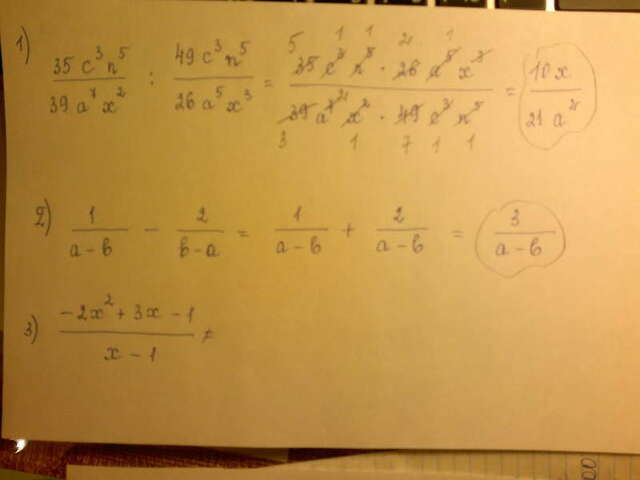 1) 35 c³ n⁵ / 39 a⁷ x² : 49 c³ n⁵ / 26 a⁵ x³ = 35 c³ n⁵ · 26 a⁵ x³ / 39 a⁷ x² · 49 c³ n⁵ = 10x / 21 a²
2) 1 / a - b - 2 / b - a = 1 / a - b + 2 / a - b = 3 / a - b
3) -2x² + 3x - 1 / x - 1 =